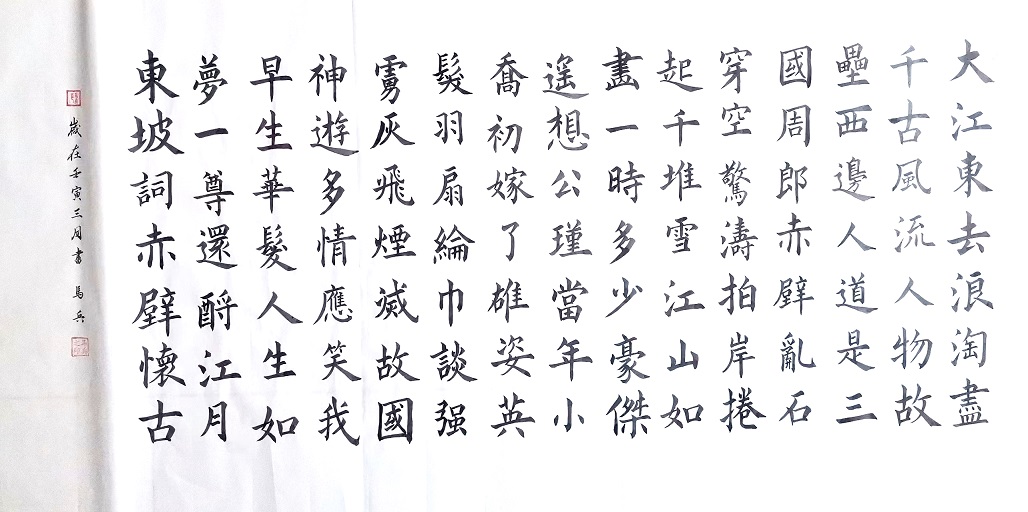 大江東去浪淘盡
千古風流人物故
壘西邊人道是三
國周郎赤壁亂石
穿空驚濤拍岸捲
起千堆雪江山如
畫一時多少豪傑
遥想公瑾當年小
喬初嫁了雄姿英
髮羽扇綸巾談强
虜灰飛煙滅故國
神遊多情應笑我
早生華髮人生如
夢一尊還酹江月
東坡詞赤壁懷古
歲在壬寅三月書 馬兵